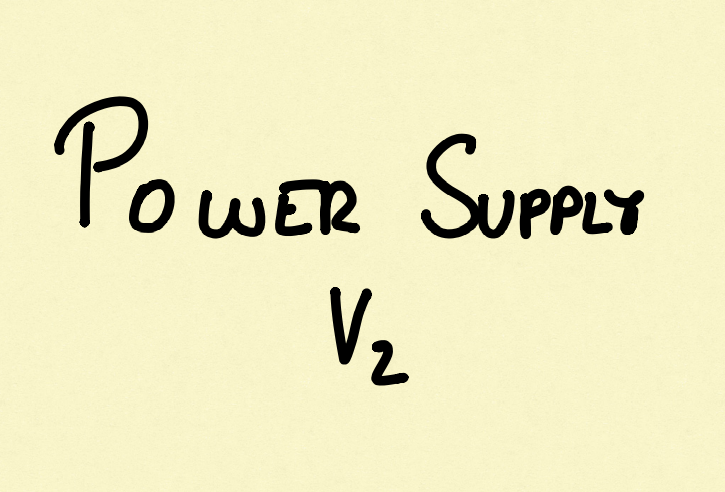 Power Supply
V2